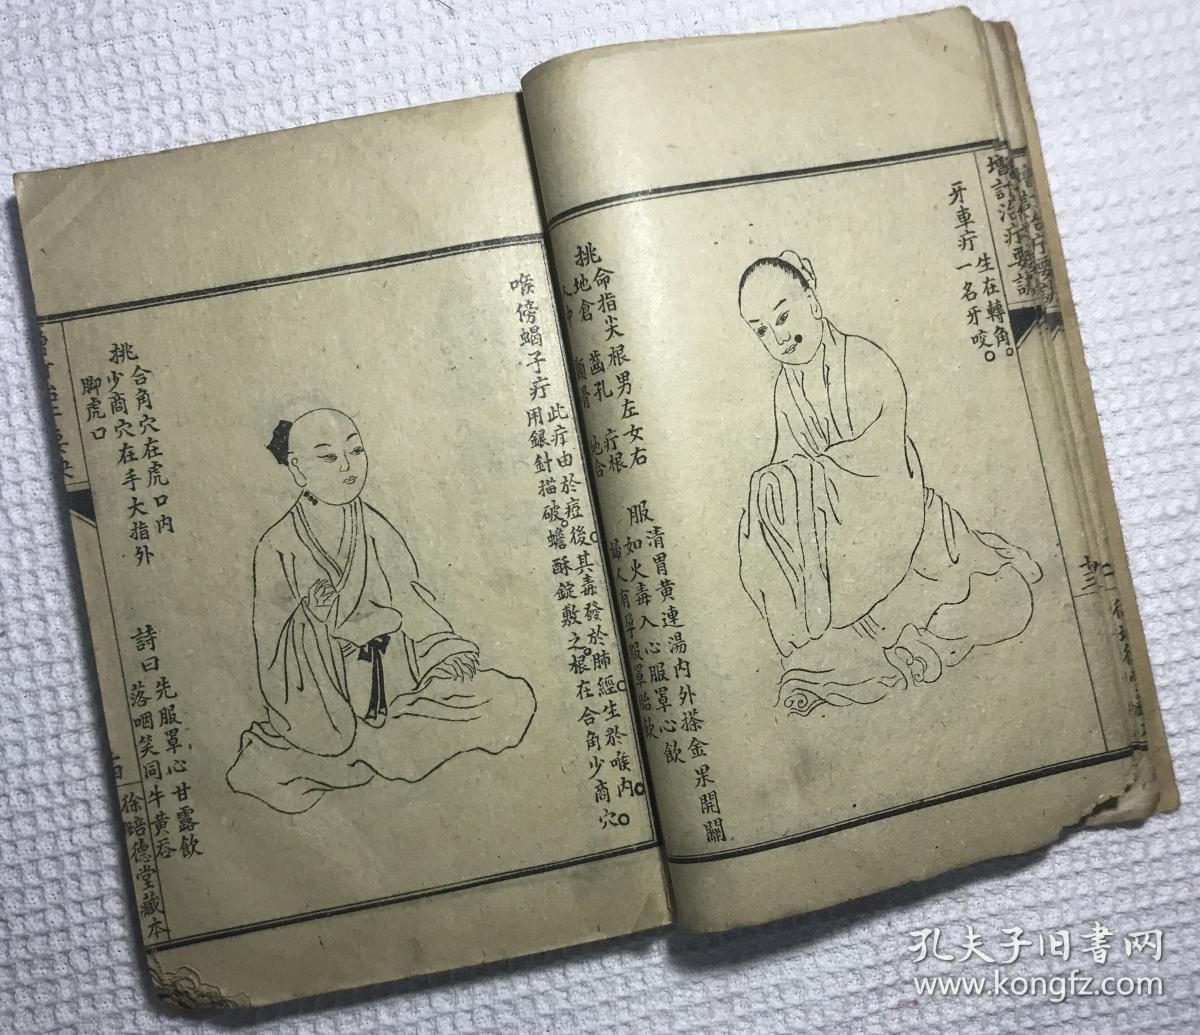 增訂治疔要訣
牙車疔
生在轉角。
一名牙咬。
挑
命指尖根男左女右
地倉
齒孔
疔根
地合
服
清胃黃連湯內外搽金果開關
如火毒入心服罩心飲
婦人有孕服罩胎飲
十三
喉傍蝎子疔
此疔由於痘後。其毒發於肺經。生於喉內。
用銀針描破。蟾酥錠敷之。根在合角少商穴。
挑
合角穴在虎口內
少商穴在手大指外
脚虎口
詩曰
先服罩心甘露飲
落咽笑同牛黃吞
徐培德堂藏本
孔夫子旧書网
www.kongfz.com